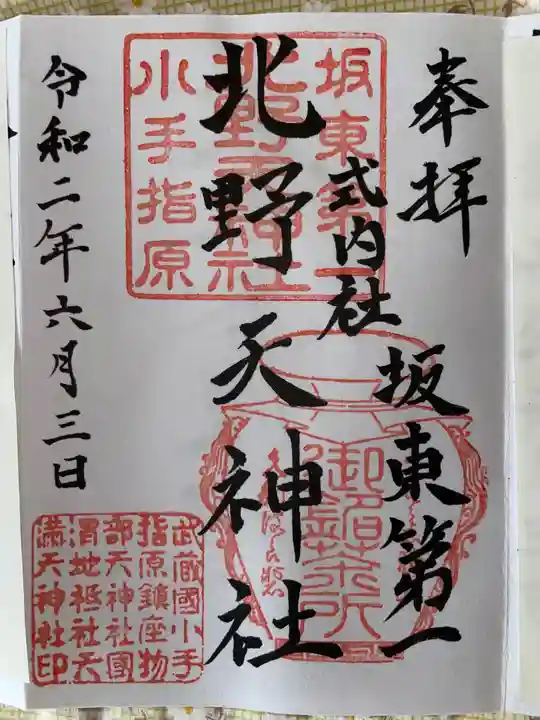 奉拝
坂東第一
式内社
北野天神社
令和二年六月三日
坂東第一
北野天神社
小手指原
武蔵國小手
指原鎮座物
部天神社國
渭地祇社天
満天神社印